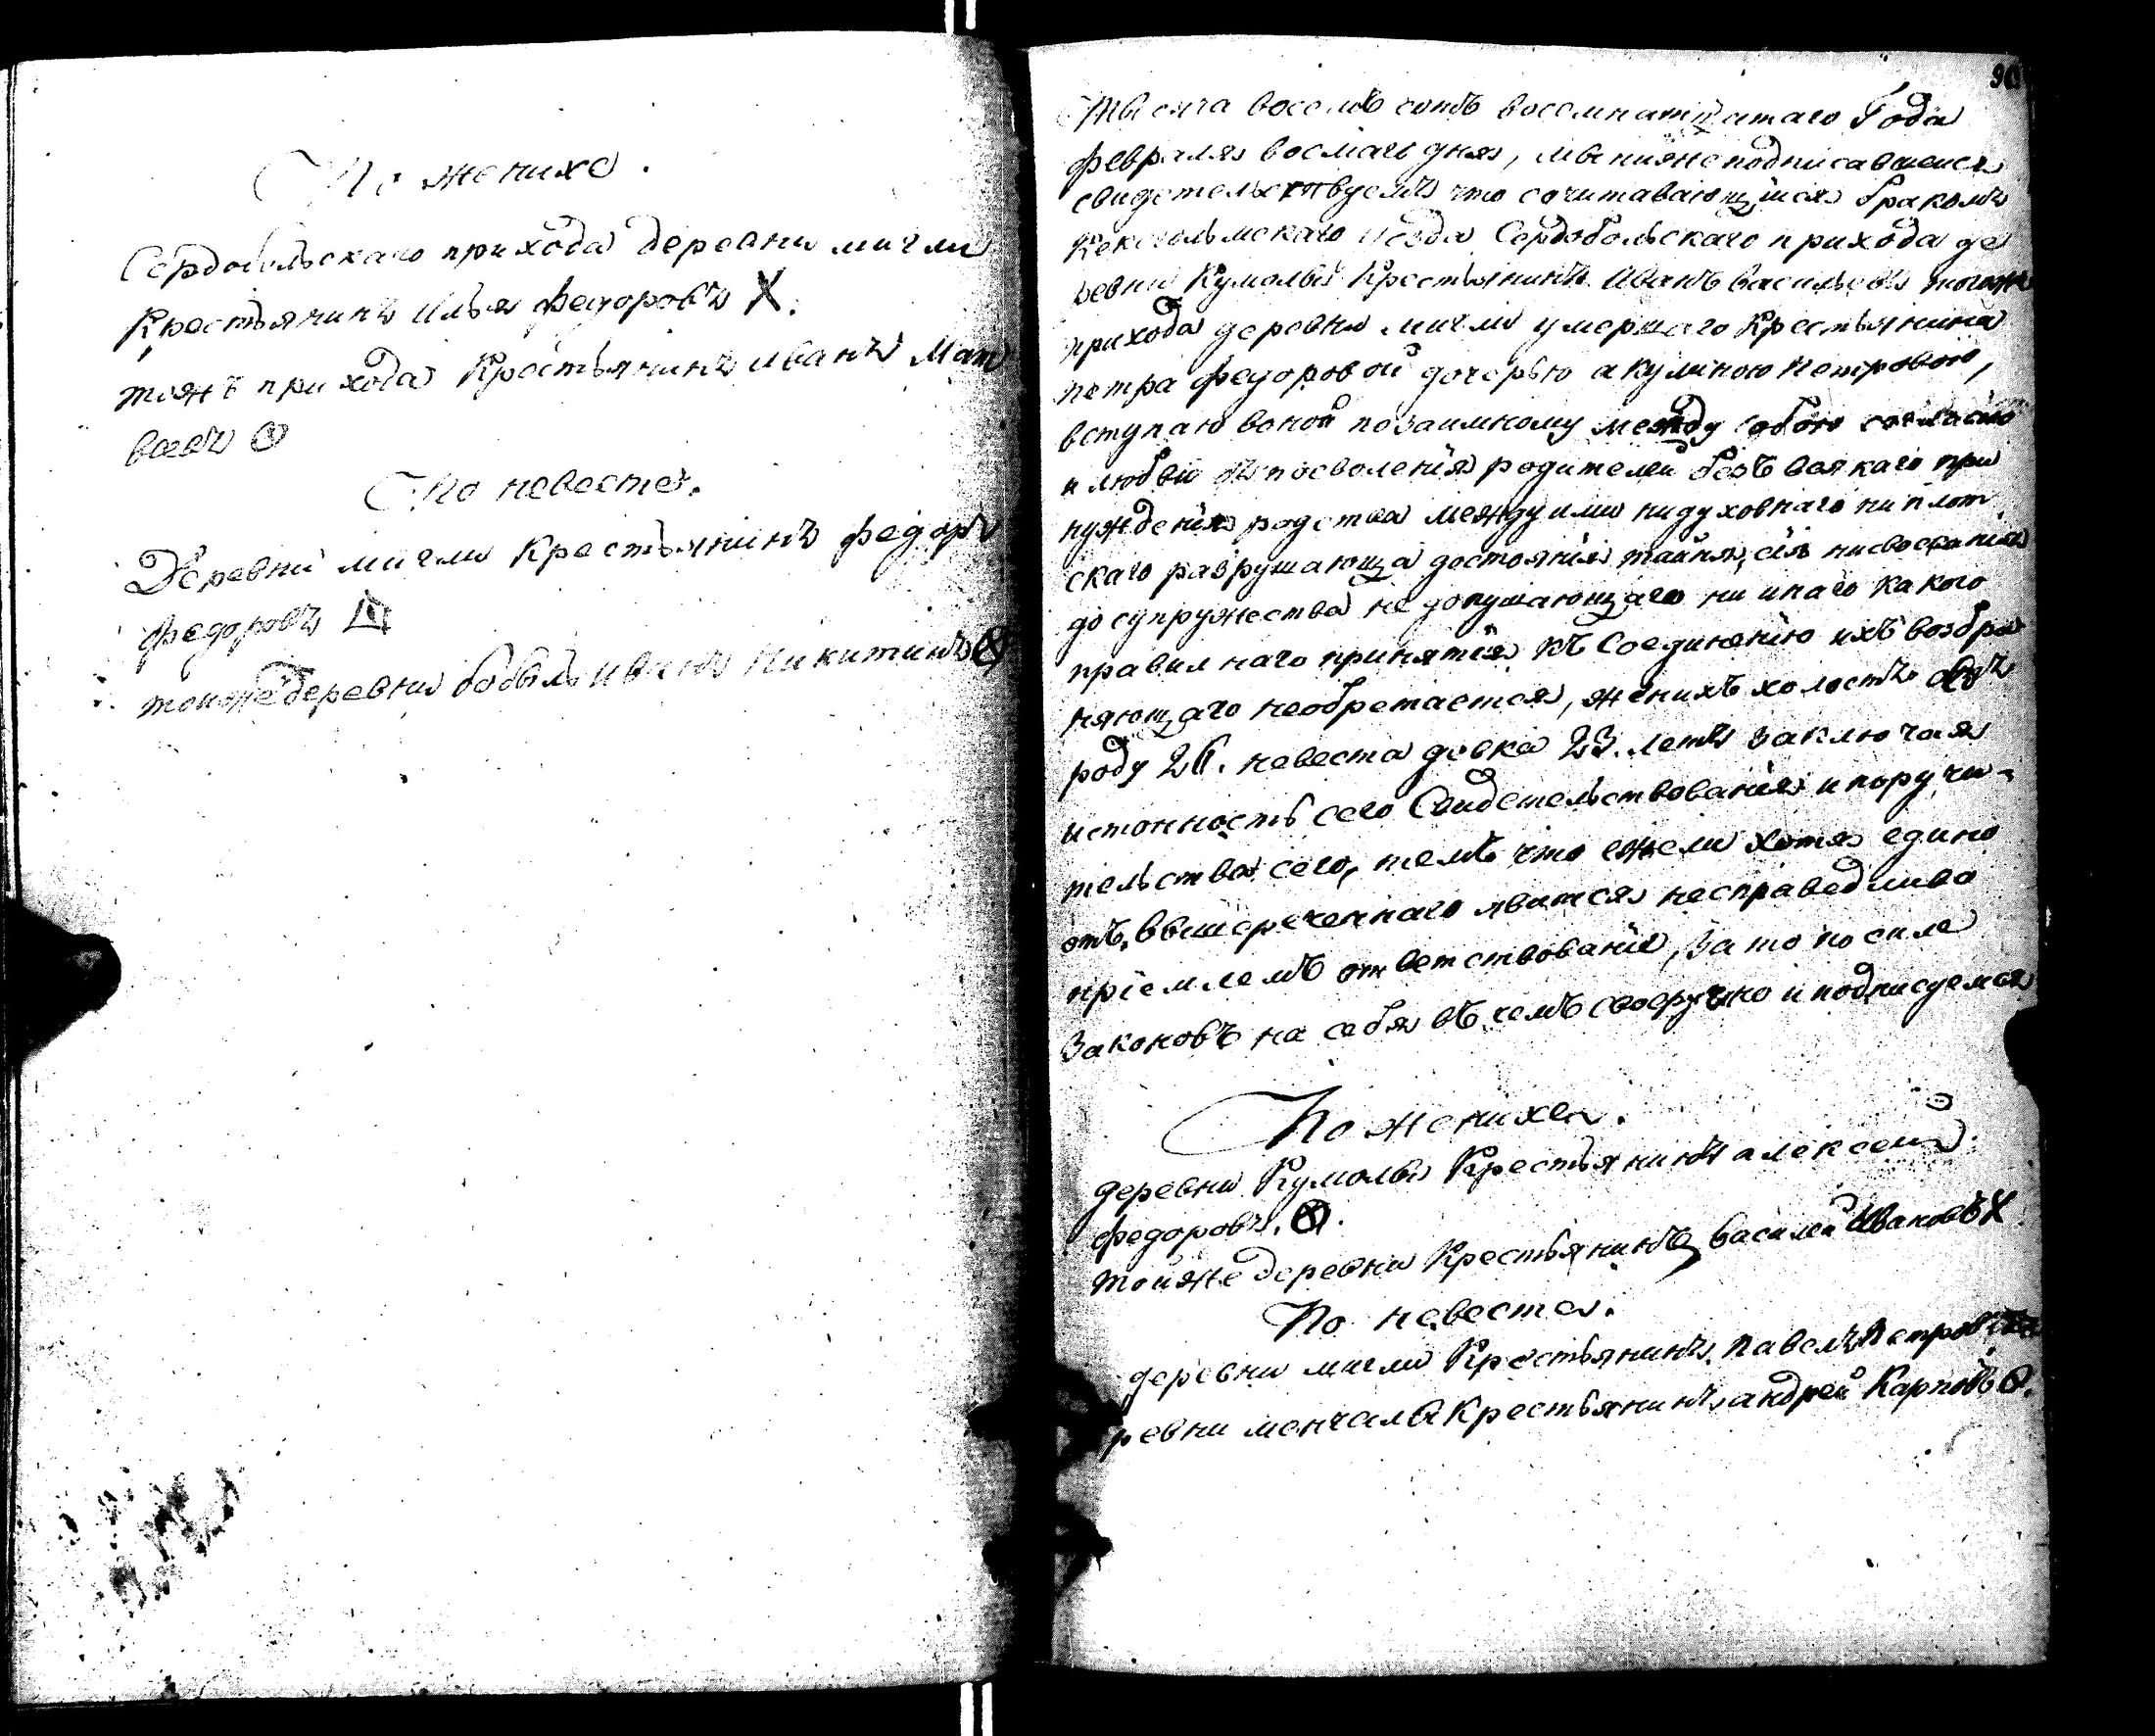 По женихе.
Сердобольскаго прихода деревни мигли
Крестьянинъ Илья федоровъ X.
тояжъ прихода Крестьянинъ иванъ Мат
веевъ
По невесте.
Деревни мигли Крестьянинъ федоръ
федоровъ
тойже деревни бобыль иванъ Никитинъ
90
Тысяча восемь сотъ восемнатцатаго Года
февраля восмаго дня, мы нижеподписавшеися
свидетельствуемъ что сочитавающийся бракомъ
Кексгольмскаго уезда Сердобольскаго прихода де
ревни Кумолы Крестьянинъ Иванъ васильевъ тогожъ
прихода деревни мигли умершаго Крестьянина
петра федоровой дочерью акулиною петровою,
вступаю воной повзаимному между собою согласию
и любви съ позволения родителей безъ всякаго при
нуждения родства между ими ни духовнаго ни плот
скаго разрушающа достояния тайня, сия
до супружества не допущающаго ни инаго какого
правилнаго принятия къ Соединению ихъ возбра
няющаго необретается, женихъ холостъ отъ
роду 26. невеста девка 23. летъ заключая
истонность сего Свидетельствования и поручи-
тельства сего, темъ что ежели хотя едино
отъ вышереченнаго явится несправедливо
приемлемъ ответствование, за то по силе
законовъ на себя въ чемъ своеручно и подписуемся
По женихе.
деревни Кумолы Крестьянинъ алексей
федоровъ.
тойже деревни Крестьянинъ василей Ивановъ X
По невесте.
деревни мигли Крестьянинъ павелъ Петровъ
ревни менчела Крестьянинъ андрей Карповъ